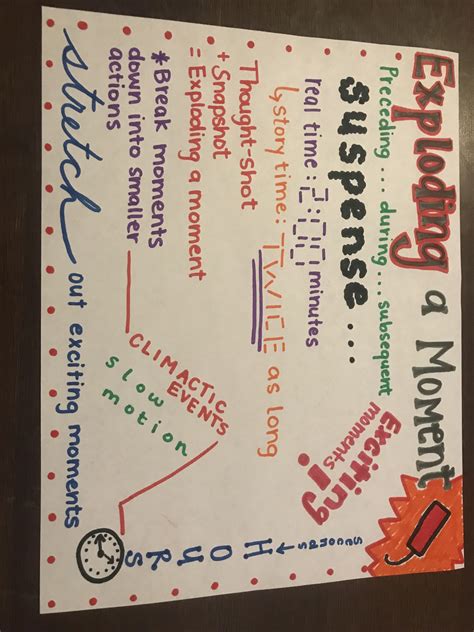 Exploding a Moment
Preceding... during... subsequent
suspense...
Exciting
moments!
real time: 2:00 minutes
story time: TWICE as long
Thought-shot
+ Snapshot
= Exploding a moment
seconds
HOURS
*Break moments
down into smaller
actions
CLIMACTIC
EVENTS
slow
motion
stretch out exciting moments